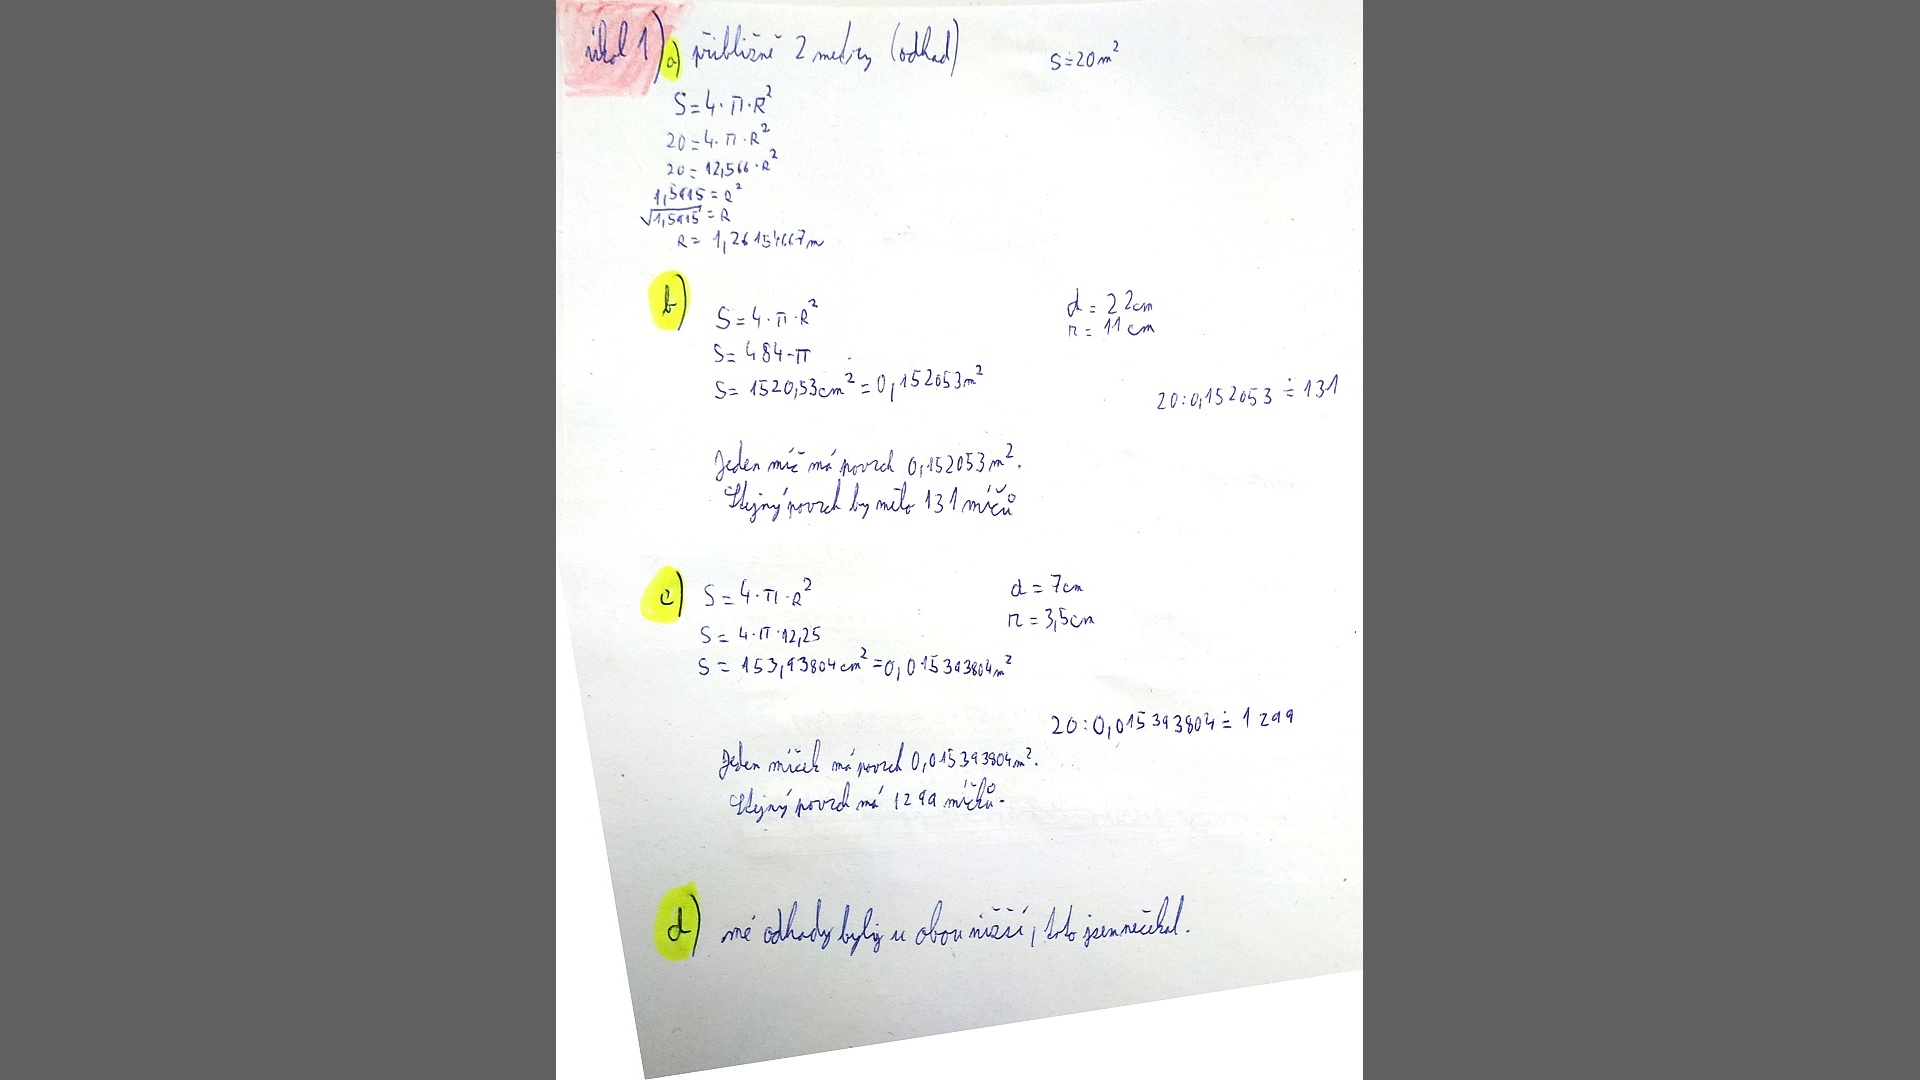 úkol 1) a) přibližně 2 metry (odhad) S≐20m²
S=4·π·R²
20=4·π·R²
20=12,566·R²
1,5915=R²
√1,5915=R
R=1,26154667m
b)
S=4·π·R² d=22cm
r=11cm
S=484·π
S=1520,53cm²=0,152053m²
20:0,152053≐131
Jeden míč má povrch 0,152053m².
Stejný povrch by mělo 131 míčů
c) S=4·π·R² d=7cm
r=3,5cm
S=4·π·12,25
S=153,93804cm²=0,015393804m²
20:0,015393804≐1299
Jeden míček má povrch 0,015393804m².
Stejný povrch má 1299 míčků.
d) mé odhady byly u obou nižší, toto jsem nečekal.